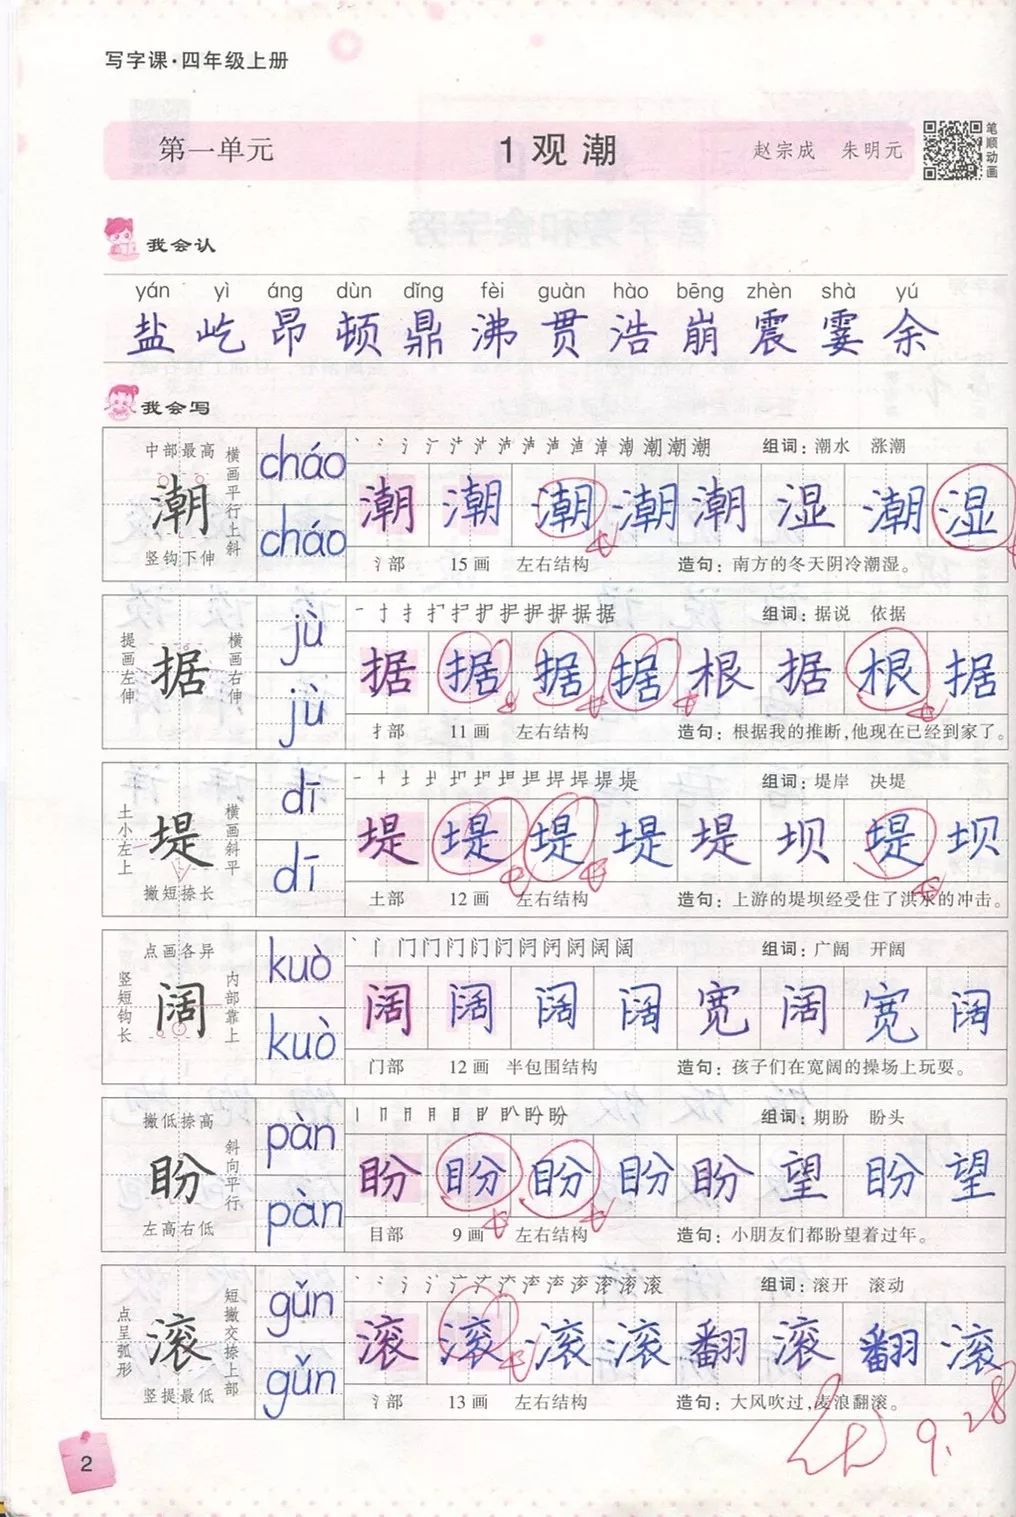 写字课·四年级上册
第一单元 1 观潮 赵宗成 朱明元
笔顺动画
我会认
yán yì áng dùn dǐng fèi guàn hào bēng zhèn shà yú
盐 屹 昂 顿 鼎 沸 贯 浩 崩 震 霎 余
我会写
中部最高 横画平行上斜
潮
竖钩下伸
cháo
cháo
组词：潮水 涨潮
潮 潮 潮 潮 潮 湿 潮 湿
氵部 15 画 左右结构 造句：南方的冬天阴冷潮湿。
提画左伸 横画右伸
据
jù
jù
组词：据说 依据
据 据 据 据 根 据 根 据
扌部 11 画 左右结构 造句：根据我的推断，他现在已经到家了。
土小左上 横画斜平
堤
撇短捺长
dī
dī
组词：堤岸 决堤
堤 堤 堤 堤 堤 坝 堤 坝
土部 12 画 左右结构 造句：上游的堤坝经受住了洪水的冲击。
点画各异
竖短钩长 内部靠上
阔
kuò
kuò
组词：广阔 开阔
阔 阔 阔 阔 宽 阔 宽 阔
门部 12 画 半包围结构 造句：孩子们在宽阔的操场上玩耍。
撇低捺高 斜向平行
盼
左高右低
pàn
pàn
组词：期盼 盼头
盼 盼 盼 盼 盼 望 盼 望
目部 9 画 左右结构 造句：小朋友们都盼望着过年。
点呈弧形 短撇交捺上部
滚
竖提最低
gǔn
gǔn
组词：滚开 滚动
滚 滚 滚 滚 翻 滚 翻 滚
氵部 13 画 左右结构 造句：大风吹过，麦浪翻滚。
9.28
2